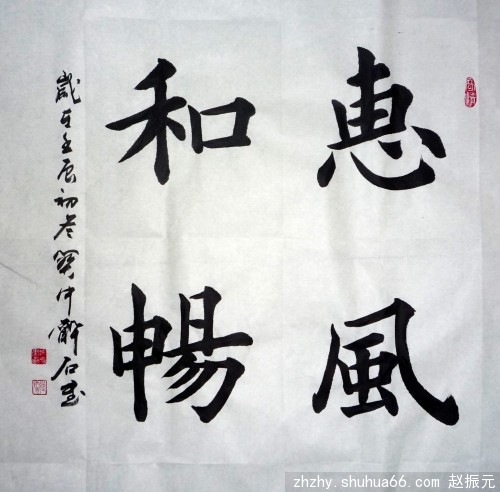 惠風
和暢
歲在壬辰初冬中石
zhzhy.shuhua66.com 赵振元